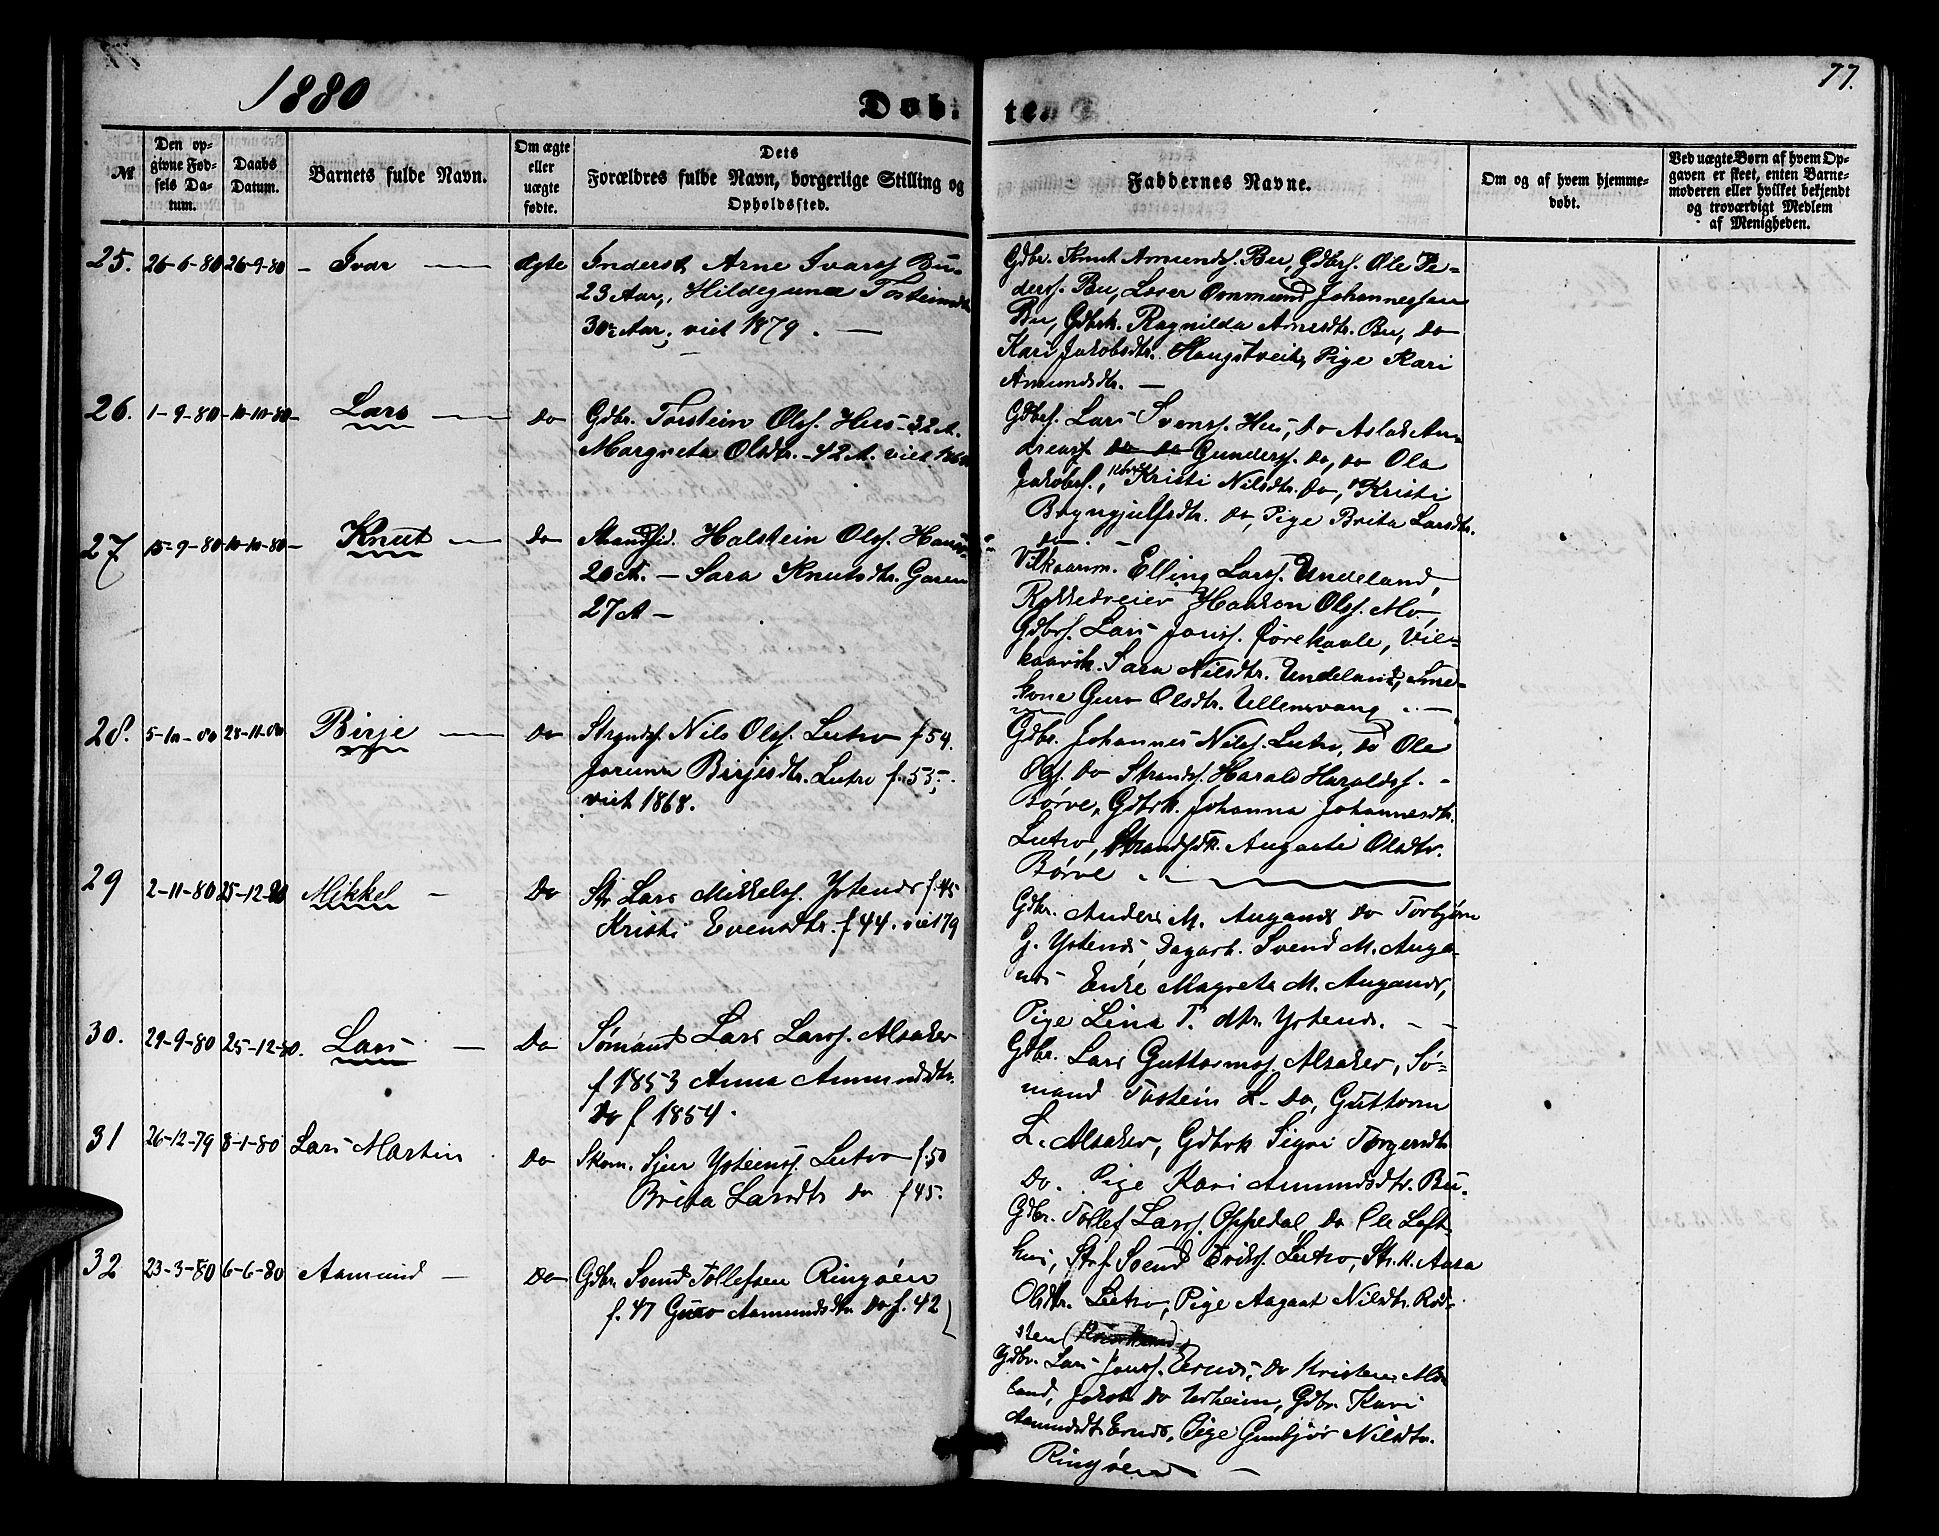 1880
Døb-
te.
77.
№
Den op-
givne Fød-
sels Da-
tum.
Daabs
Datum.
Barnets fulde Navn.
Om ægte
eller
uægte
fødte.
Dets
Forældres fulde Navn, borgerlige Stilling og
Opholdssted.
Faddernes Navne.
Om og af hvem hjemme-
døbt.
Ved uægte Børn af hvem Op-
gaven er skeet, enten Barne-
moderen eller hvilket bekjendt
og troværdigt Medlem
af Menigheden.
25. 26-6-80 26-9-80 - Ivar — Ægte
Inderst Arne Ivarss Bu-
23 Aar, Hildegunna Tosteinsdtr
30 Aar, viet 1879. —
Gdbr. Knut Amunds. Bu, Gdbrs. Ole Pe-
derss. Bu, Løser Ommund Johannessen
Bu, Gdbrk. Ragnilda Arnesdtr. Bu, do
Kari Jakobsdtr. Haugstveit, Pige Kari
Amundsdtr. —
26. 1-9-80 10-10-80 - Lars — do
Gdbr. Torstein Olss. Hus - 32 A.
Margreta Olsdtr. - 42 A. viet
Gdbrs. Lars Svenss. Hus, do Aslak An-
dreass. do do Gunderss. do, do Ola
Jakobss., Kristi Nilsdtr. do, Kristi
Bryngjulfsdtr. do, Pige Brita Larsdtr.
do. —
27 15-9-80 10-10-80 - Knut — do
Strandsid. Halstein Olss. Haus-
26 A. — Sara Knutsdtr. Garen
27 A —
Vilkaarm. Elling Larss. Undeland,
Rokkedreier Haakon Olss. Mo,
Gdbrs. Lars Jonss. Børekaale, Vil-
kaarsk. Sara Nilsdtr. Undeland, Sme-
kone Guro Olsdtr. Ullensvang. —
28. 5-10-80 28-11-80 Birje — do
Strands. Nils Olss. Lutro f 54.
Jorunna Birjesdtr. Lutro f. 55,
viet 1868.
Gdbr. Johannes Nilss. Lutro, do Ola
Olss. do Strands. Harald Haralds. -
Børve, Gdbrk. Johanna Johannesdtr.
Lutro, Strandsdk. Augusta Olsdtr.
Børve.
29 2-11-80 25-12-80 Mikkel - Do
Str. Lars Mikkels. Ystenes f. 45
Kristi Evensdtr. f 44. viet 79
Gdbr. Anders M. Augands Do Torbjørn
G. Ystenes, Dagarb. Svend M. Auga-
nds Enke Magreta M. Augands,
Pige Lina T. dtr. Ystenes. - -
30. 29-9-80 25-12-80. Lars - Do
Sømand Lars Larss. Alsaker
f 1853 Anna Amundsdtr.
Do f 1854.
Gdbr. Lars Guttormss. Alsaker, Sø-
mand Tostein L. Do, Guttorm
L. Alsaker, Gdbrk Sigri Torgersdtr
Do. Pige Kari Amundsdtr. Bu.
31 26-12-79 8-1-80 Lars Martin Do
Skom. Sjur Ysteenss. Lutro f. 50
Brita Larsdtr do f 45.
Gdbr. Tollef Larss. Oppedal, Do Ole Loft-
hus, Str. f Svend Erikss. Lutro, Str. k. Ansa
Olsdtr. Lutro, Pige Aagaat Nilsdtr. Rød-
sten
32 23-3-80 6-6-80 Aamund - Do
Gdbr. Svend Tollefsen Ringøen
f. 47 Guro Aamundsdtr. Do f. 42
Gdbr. Lars Jonss. Ernes, Do Kristen Mæ-
land, Jakob Do Urheim, Gdbr. Kari
Aamundsdtr Ernes, Pige Gunbjør Nilsdtr.
Ringøen —